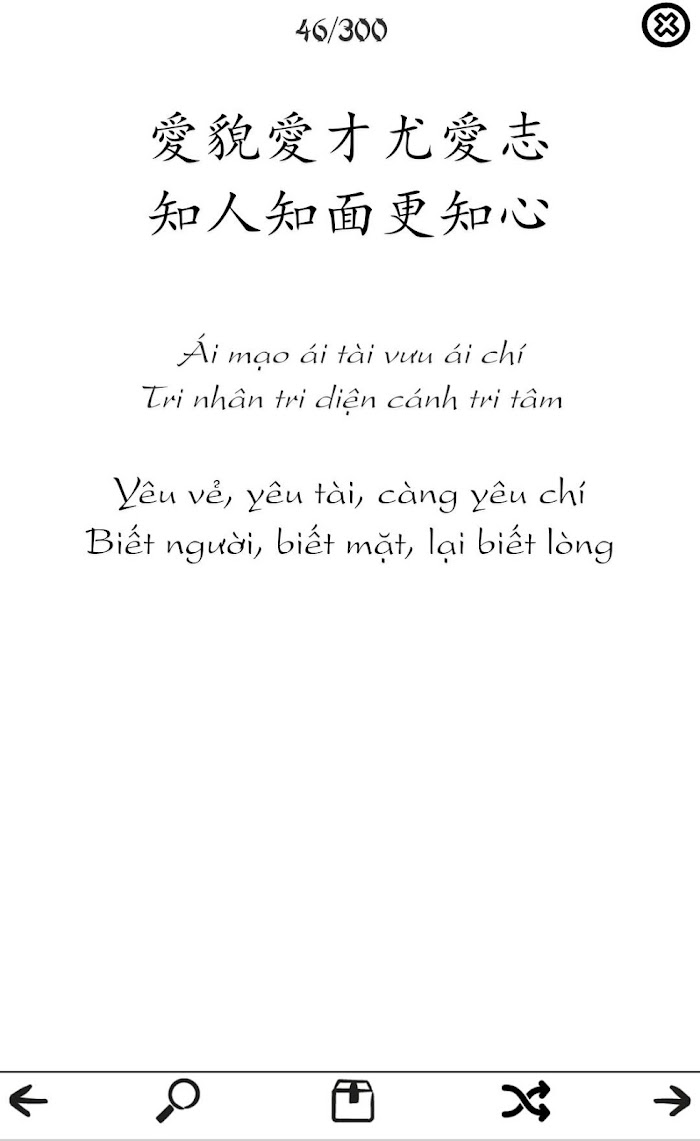 46/300
愛貌愛才尤愛志
知人知面更知心
Ái mạo ái tài vưu ái chí
Tri nhân tri diện cánh tri tâm
Yêu vẻ, yêu tài, càng yêu chí
Biết người, biết mặt, lại biết lòng